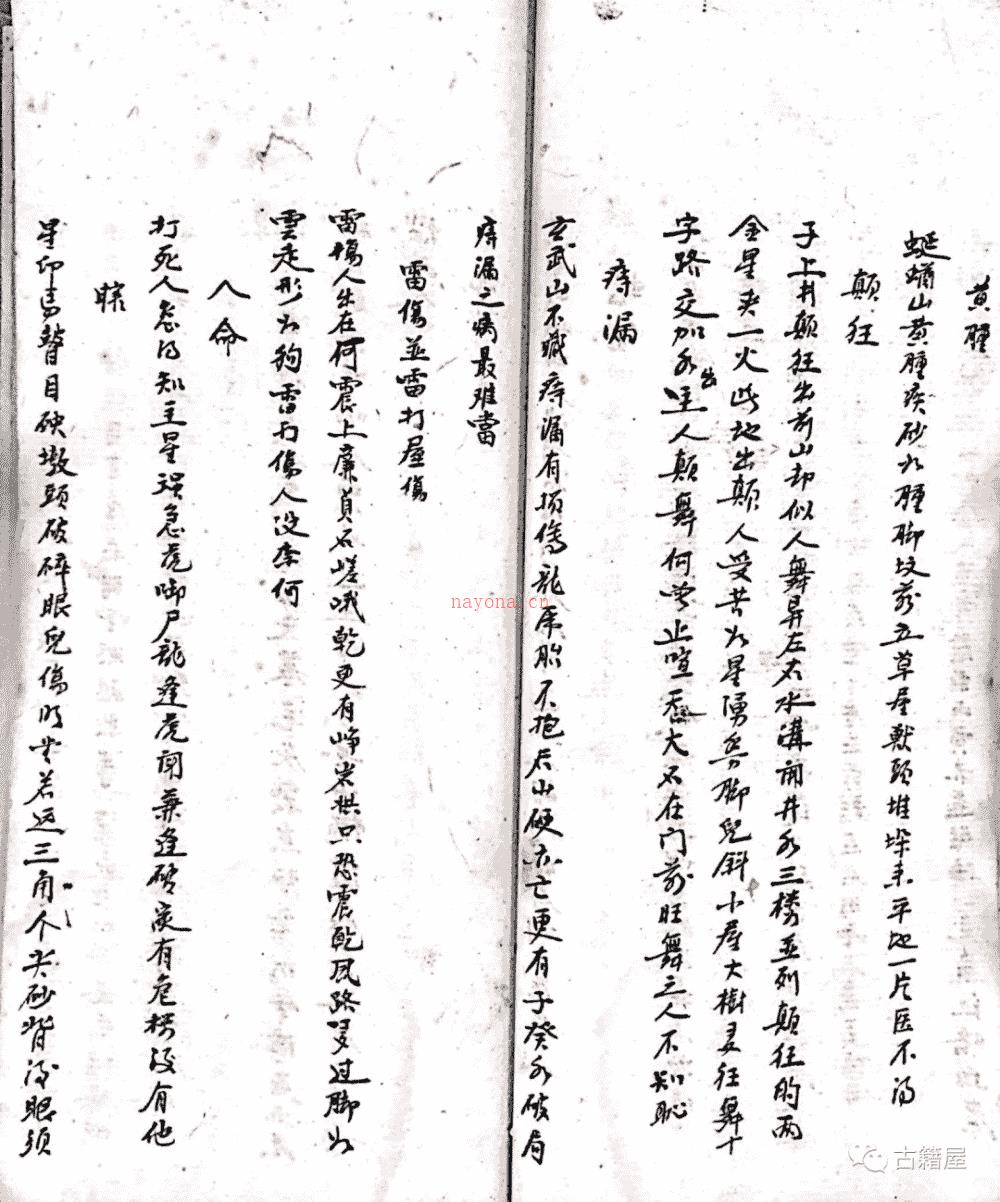 黄腫
蜒蝤山黄腫疾砂如腫脚坟前立草屋獸頭堆垛未平地一片医不得
顛狂
子上井顛狂出前山却似人舞弄左右水溝開井水三楼並列顛狂的两
金星夹一火此地出顛人受苦火星勇勞脚兒斜小屋大樹多狂舞十
字路交加水出主人顛舞何曾止喧天大石在门前旺舞之人不知恥
痔漏
玄武山不藏痔漏有损傷龍虎胎不抱后山硬亦亡更有子癸水破局
痔漏之病最难當
雷傷並雷打屋傷
雷傷人出在何震上廉貞石嵯峨乾更有峥岩拱只恐震乾風路多过脚如
雲走形如狗雷打傷人没奈何
人命
打死人怎得知主星强急虎啣尸龍逢虎開兼逢破定有危楼没有他
瞎
星印多瞽目硬墩頭破碎眼兒傷明堂若逗三角个尖砂背後眼須
nayona.cn
古籍屋